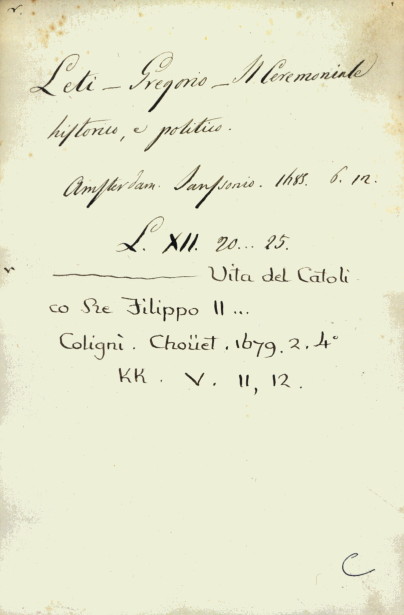 Leti — Gregorio — Il Ceremoniale
historico, e politico.
Amsterdam. Jansonio. 1685. 6. 12.
L. XII. 20... 25.
———— Vita del Catoli
co Re Filippo II ...
Colignì. Choüet. 1679. 2. 4°
KK. V. 11, 12.
C